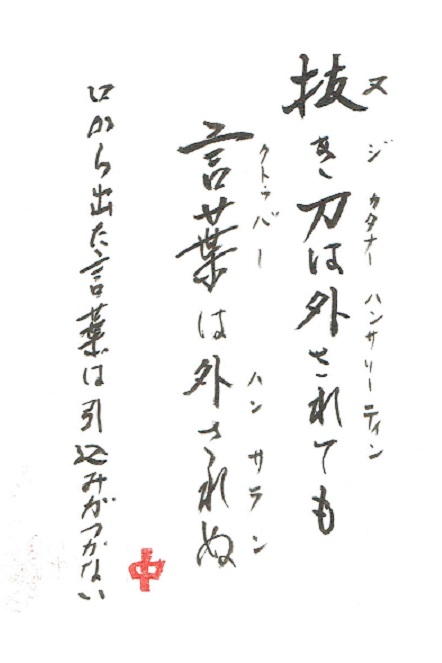 抜き刀は外されても
ヌジカタナーハンサリーティン
言葉は外されぬ
クトゥバーハンサラン
口から出た言葉は引込みがつかない
中